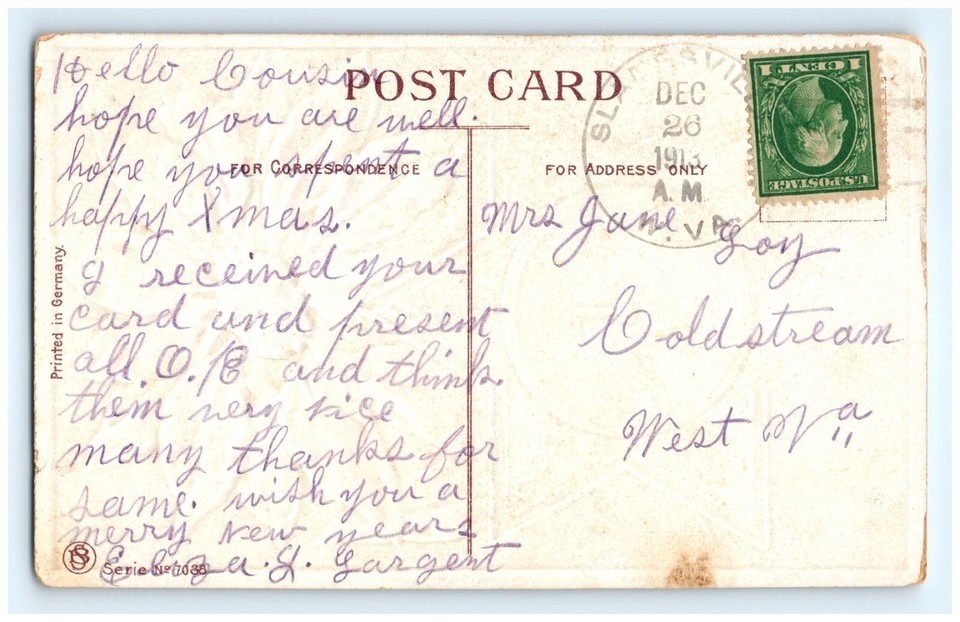 POST CARD
FOR CORRESPONDENCE
FOR ADDRESS ONLY
Hello Cousin
hope you are well.
hope you spent a
happy Xmas.
I received your
card and present
all. O.K and think
them very nice
many thanks for
same. wish you a
merry New years
Eliza. G. Sargent
Mrs Jane Loy
Coldstream
West Va
DEC
26
1913
A.M.
W. VA.
1 CENT 1
U.S. POSTAGE
Printed in Germany.
Serie No 7038